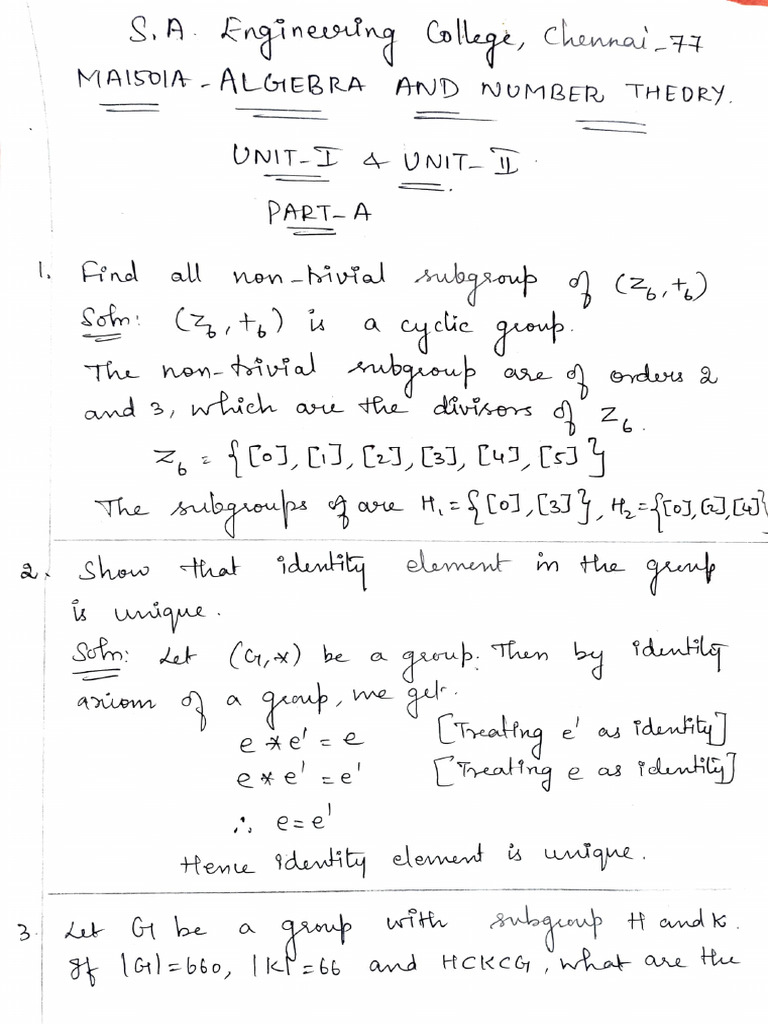 S.A. Engineering College, Chennai-77
MA1501A - ALGEBRA AND NUMBER THEORY.
UNIT-I & UNIT-II.
PART-A
1. Find all non-trivial subgroup of (Z6, +6)
Soln: (Z6, +6) is a cyclic group.
The non-trivial subgroup are of orders 2
and 3, which are the divisors of Z6.
Z6 = {[0], [1], [2], [3], [4], [5]}
The subgroups of are H1 = {[0], [3]}, H2 = {[0], [2], [4]}
2. Show that identity element in the group
is unique.
Soln: Let (G, *) be a group. Then by identity
axiom of a group, we get.
e * e' = e [Treating e' as identity]
e * e' = e' [Treating e as identity]
∴ e = e'
Hence identity element is unique.
3. Let G be a group with subgroup H and K.
If |G| = 660, |K| = 66 and H⊂K⊂G, what are the